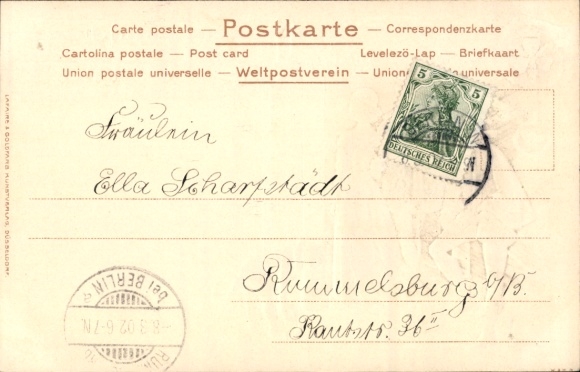 Carte postale — Postkarte — Correspondenzkarte
Cartolina postale — Post card Levelező-Lap — Briefkaart
Union postale universelle — Weltpostverein — Union universale
5 5
DEUTSCHES REICH
Fräulein
Ella Scharfstädt
Rummelsburg b/B.
Kantstr. 36 II
bei BERLIN
a
-8.3.02.6-7N.
LAFAIRE & GOLDFARB KUNSTVERLAG, DÜSSELDORF